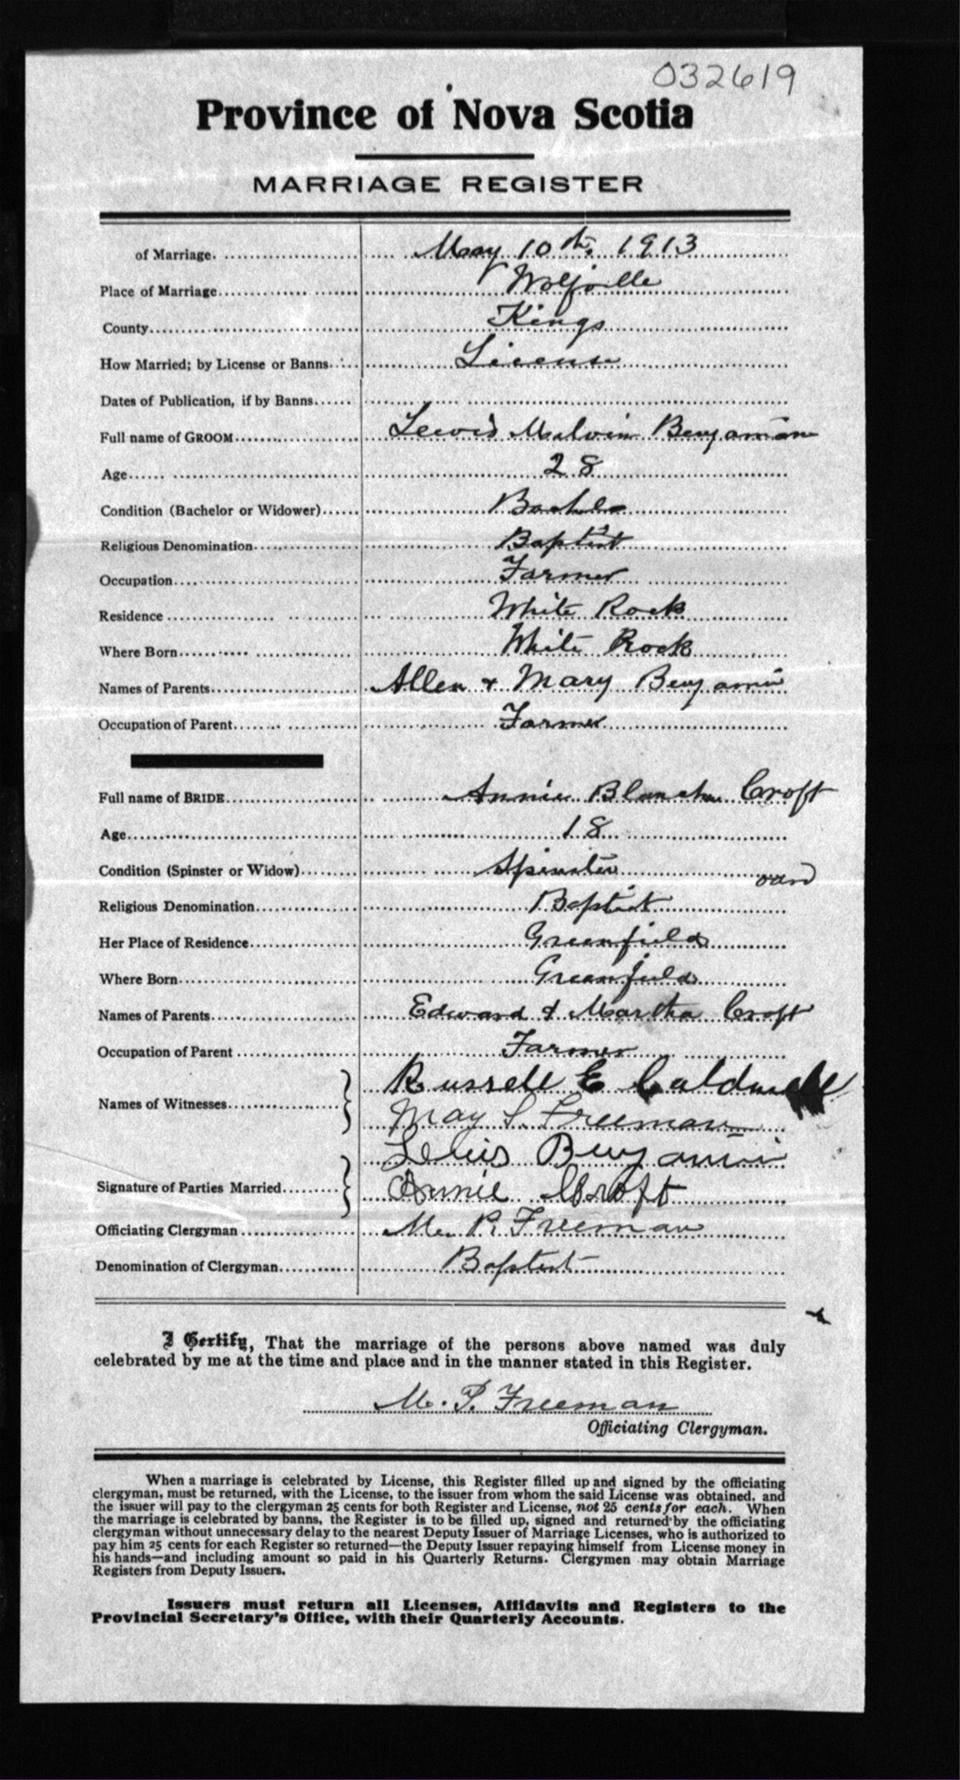 032619
Province of Nova Scotia
MARRIAGE REGISTER
of Marriage. May 10th, 1913
Place of Marriage Wolfville
County Kings
How Married; by License or Banns License
Dates of Publication, if by Banns
Full name of GROOM Lewis Malvin Benjamin
Age 28
Condition (Bachelor or Widower) Bachelor
Religious Denomination Baptist
Occupation Farmer
Residence White Rock
Where Born White Rock
Names of Parents Allen & Mary Benjamin
Occupation of Parent Farmer
Full name of BRIDE Annie Blanche Croft
Age 18
Condition (Spinster or Widow) Spinster
Religious Denomination Baptist
Her Place of Residence Greenfield
Where Born Greenfield
Names of Parents Edward & Martha Croft
Occupation of Parent Farmer
Russell E Caldwell
Names of Witnesses May S. Freeman
Lewis Benjamin
Signature of Parties Married Annie Croft
Officiating Clergyman M. P. Freeman
Denomination of Clergyman Baptist
I Certify, That the marriage of the persons above named was duly
celebrated by me at the time and place and in the manner stated in this Register.
M. P. Freeman
Officiating Clergyman.
When a marriage is celebrated by License, this Register filled up and signed by the officiating
clergyman, must be returned, with the License, to the issuer from whom the said License was obtained, and
the issuer will pay to the clergyman 25 cents for both Register and License, not 25 cents for each. When
the marriage is celebrated by banns, the Register is to be filled up, signed and returned by the officiating
clergyman without unnecessary delay to the nearest Deputy Issuer of Marriage Licenses, who is authorized to
pay him 25 cents for each Register so returned—the Deputy Issuer repaying himself from License money in
his hands—and including amount so paid in his Quarterly Returns. Clergymen may obtain Marriage
Registers from Deputy Issuers.
Issuers must return all Licenses, Affidavits and Registers to the
Provincial Secretary's Office, with their Quarterly Accounts.